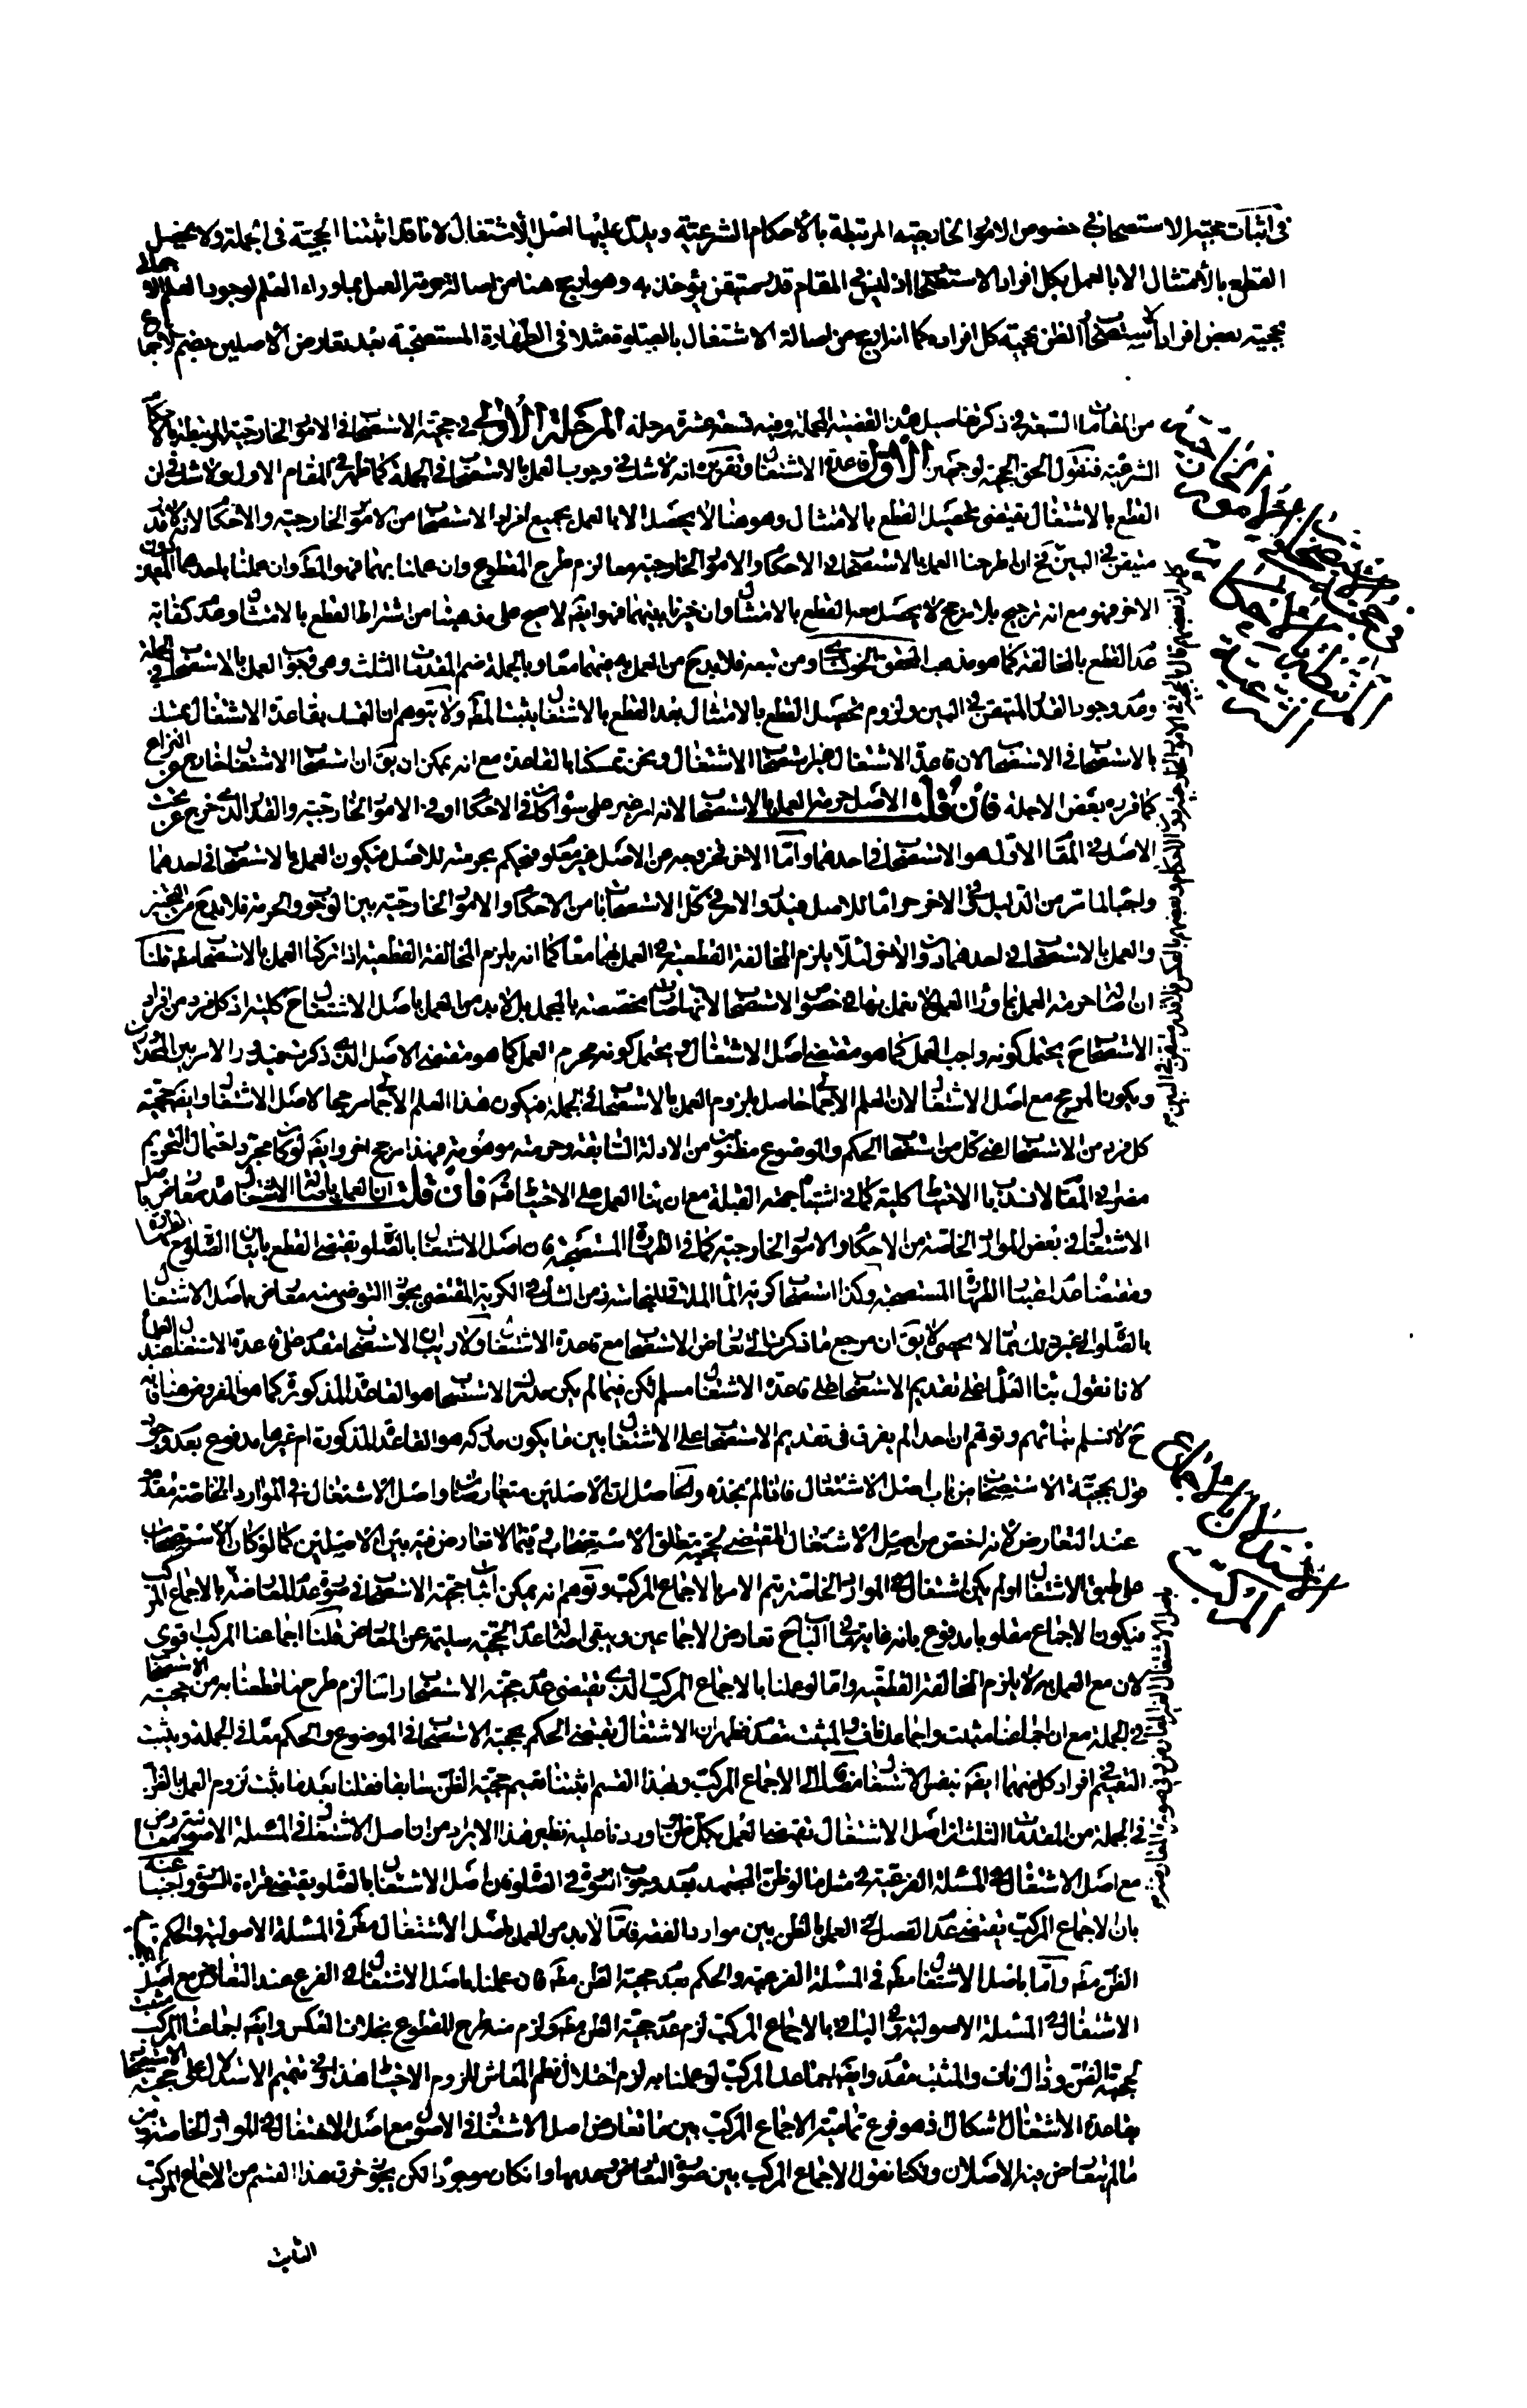 في اثبات حجية الاستصحاب في خصوص الامور الخارجيه المرتبطة بالأحكام الشرعيّة ويدلّ عليها اصل الاشتغال لانا قد اثبتنا الحجيّة في الجملة ولا يحصل
القطع بالأمتثال الا بالعمل بكل افراد الاستصحاب اذ ليس في المقام قدر متيقن يؤخذ به وهو ارجح هنا من اصالة حرمة العمل بما وراء العلم لوجود العلم الاجمالي
بحجية بعض افراد الاستصحاب الظن بحجية كل افراده كما انه ارجح من اصالة الاشتغال بالعبادة مثلا في الطهارة المستصحبة بعد تعارض الأصلين بضم الاجماع
من المقامات التسعة في ذكر تفاصيل هذه القضية المجملة وفيه تسعة عشرة مرحلة المرحلة الأولى في حجية الاستصحاب في الامور الخارجية المرتبطة بالاحكام
الشرعية فنقول الحق الحجية لوجهين الأول قاعدة الاشتغال وتقريره انه لا شك في وجوب العمل بالاستصحاب في الجملة كما ظهر في المقام الاول ولا شك في ان
القطع بالاشتغال يقتضي تحصيل القطع بالامتثال وهو هنا لا يحصل الا بالعمل بجميع افراد الاستصحاب من الامور الخارجية والاحكام لانه لا قدر
متيقن في البين ح ان طرحنا العمل بالاستصحاب في الاحكام والامور الخارجية معا لزم طرح المقطوع وان عملنا بهما فهو المط وان عملنا باحدهما المعين دون
الاخر فهو مع انه ترجيح بلا مرجح لا يحصل معه القطع بالامتثال وان خيرنا بينهما فهو ايض لا يصح على مذهبنا من اشتراط القطع بالامتثال وعدم كفاية
عدم القطع بالمخالفة كما هو مذهب المحقق الخونساري ومن تبعه فلا بد ح من العمل به فيهما معا وبالجملة ضم المقدمات الثلث وهى وجوب العمل بالاستصحاب في الجملة
وعدم وجود القدر المتيقن في البين ولزوم تحصيل القطع بالامتثال بعد القطع بالاشتغال يثبتنا المط ولا يتوهم ان التمسك بقاعدة الاشتغال تمسك
بالاستصحاب في الاستصحاب لان قاعدة الاشتغال غير استصحاب الاشتغال ونحن تمسكنا بالقاعدة مع انه يمكن ان يق ان استصحاب الاشتغال خارج عن النزاع
كما قرره بعض الاجلة فان قلت الاصل حرمة العمل بالاستصحاب لانه امر غير علمي سواء كان في الاحكام او في الامور الخارجية والقدر الذي خرج عن تحت
الاصل في المقام الاول هو الاستصحاب في احدهما واما الاخر فخروجه من الاصل غير معلوم فيحكم بحرمته للاصل فيكون العمل بالاستصحاب في احدهما
واجبا لما مر من الدليل وفى الاخر حراما للاصل فيدور الامر في كل الاستصحابات من الاحكام والامور الخارجية بين الوجوب والحرمة فلا بد ح من التخيير
والعمل بالاستصحاب في احدهما دون الاخر لئلا يلزم المخالفة القطعية في العمل بهما معا كما انه يلزم المخالفة القطعية اذا تركنا العمل بالاستصحاب مط قلنا
ان اصالة حرمة العمل بما وراء العلم لا نعمل بها في خصوص الاستصحاب لانها صارت مخصصة بالمجمل بل لا بد من العمل باصل الاشتغال ح كلية اذ كل فرد من افراد
الاستصحاب ح يحتمل كونه واجب العمل كما هو مقتضى اصل الاشتغال ويحتمل كونه محرم العمل كما هو مقتضى الاصل الذي ذكرت فيدور الامر بين المحذورين
ويكون المرجح مع اصل الاشتغال لان العلم الاجمالي حاصل بلزوم العمل بالاستصحاب في الجملة فيكون هذا العلم الاجمالي مرجحا لاصل الاشتغال وايض حجية
كل فرد من الاستصحاب اعنى كل من استصحاب الحكم والموضوع مظنون من الادلة السابقة وحرمته موهومة فهذا مرجح اخر وايض لو كان مجرد احتمال التحريم
مضرا في المقام لانسد باب الاحتياط كلية كما في اشتباه جهة القبلة مع ان بناء العمل على الاحتياط فيه فان قلت ان العمل باصالة الاشتغال هنا معارض باصل
الاشتغال في بعض الموارد الخاصة من الاحكام والامور الخارجية كما في الطهارة المستصحبة فان اصل الاشتغال بالصلوة يقتضي القطع باتيان الصلوة مع الطهارة
ومقتضاه عدم اعتبار الطهارة المستصحبة وكذا استصحاب كرية الماء الملاقي للنجاسة زمن الشك في الكرية المقتضي بجواز التوضى منه معارض باصل الاشتغال
بالصلوة الى غير ذلك مما لا يحصى لا يق ان مرجع ما ذكرت الى تعارض الاستصحاب مع قاعدة الاشتغال ولا ريب ان الاستصحاب مقدم على قاعدة الاشتغال عند العلماء
لانا نقول بناء العلماء على تقديم الاستصحاب على قاعدة الاشتغال مسلم لكن فيما لم يكن مدرك الاستصحاب هو القاعدة المذكورة كما هو المفروض هنا فانه
ح لا نسلم بنائهم وتوهم ان احدا لم يفرق في تقديم الاستصحاب على الاشتغال بين ما يكون مدركه هو القاعدة المذكورة ام غيرها مدفوع بعدم وجود
قول بحجية الاستصحاب من باب اصل الاشتغال فانا لم نجده والحاصل ان الاصلين متعارضان واصل الاشتغال في الموارد الخاصة مقدم
عند التعارض لانه اخص من اصل الاشتغال المقتضي لحجية مطلق الاستصحاب وفيما لا تعارض فيه بين الاصلين كما لو كان الاستصحاب
على طبق الاشتغال او لم يكن اشتغال في الموارد الخاصة يتم الامر بالاجماع المركب وتوهم انه يمكن اثبات حجية الاستصحاب في صورة عدم المعارضة بالاجماع المركب
فيكون الاجماع مقلوبا مدفوع بانه غاية ما في الباب ح تعارض الاجماعين ويبقى اصالة عدم الحجية سليمة عن المعارض قلنا اجماعنا المركب اقوى
لان مع العمل به لا يلزم المخالفة القطعية واما لو عملنا بالاجماع المركب الذي يقتضي عدم حجية الاستصحاب راسا لزم طرح ما قطعنا به من حجية الاستصحاب
في الجملة مع ان اجماعنا مثبت واجماعك ناف والمثبت مقدم فظهر ان الاشتغال يقتضي الحكم بحجية الاستصحاب في الموضوع والحكم معا في الجملة ويثبت
التعميم في افراد كل منهما ايض بنفس الاشتغال منضما الى الاجماع المركب وبهذا القسم اثبتنا تعميم حجية الظن سابقا فقلنا بعد ما ثبت لزوم العمل بالظن
في الجملة من المقدمات الثلث ان اصل الاشتغال يقتضي العمل بكل ظن واوردنا عليه نظير هذا الايراد من ان اصل الاشتغال في المسئلة الاصولية معارض
مع اصل الاشتغال في المسئلة الفرعية في مثل ما لو ظن المجتهد بعدم وجوب السورة في الصلوة فان اصل الاشتغال بالصلوة يقتضي قراءة السورة واجبنا عنه
بان الاجماع المركب يقتضي عدم الفصل في العمل بالظن بين موارد الفقه فاما لا بد من العمل باصل الاشتغال مط في المسئلة الاصولية والحكم بحجية
الظن مط واما باصل الاشتغال مط في المسئلة الفرعية والحكم بعدم حجية الظن مط فان عملنا باصل الاشتغال في الفرع عند التعارض مع اصل
الاشتغال في المسئلة الاصولية وفي الباقي بالاجماع المركب لزم عدم حجية الظن مط ولزم منه طرح المقطوع بخلاف العكس وايض اجماعنا المركب مثبت
لحجية الظن وذاك ناف والمثبت مقدم وايض اجماعك المركب لو عملنا به لزم اختلال نظم المعاش للزوم الاحتياط هذا وفي تتميم الاستدلال على حجية الاستصحاب
بقاعدة الاشتغال اشكال اذ هو فرع تمامية الاجماع المركب بين ما تعارض اصل الاشتغال في الاصول مع اصل الاشتغال في الموارد الخاصة وبين
ما لم يتعارض فيه الاصلان ولكنا نقول الاجماع المركب بين صورة التعارض وعدمها وان كان موجودا لكن يجوز خرق هذا القسم من الاجماع المركب
الثابت